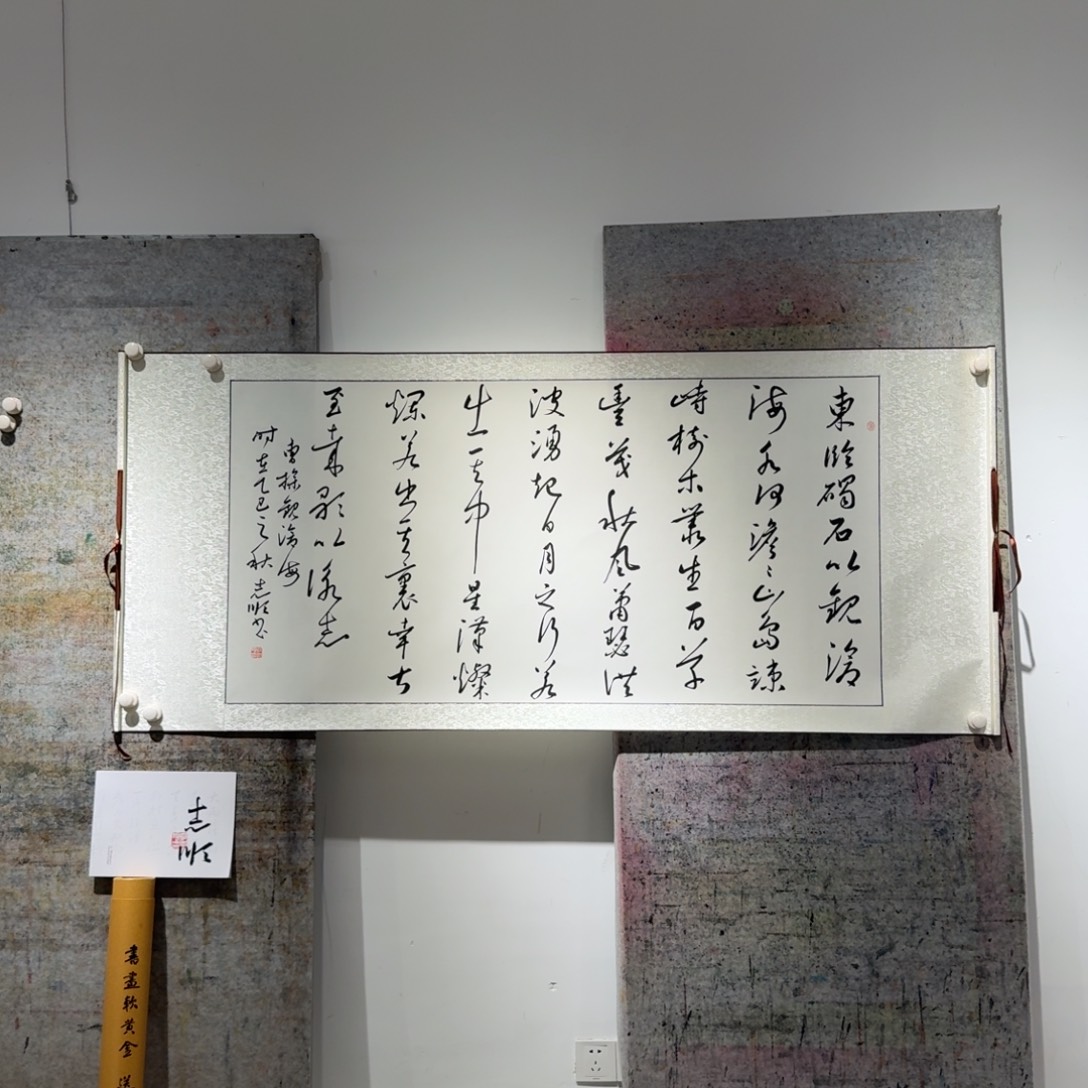 東臨碣石以觀滄
海水何澹〻山島竦
峙樹木叢生百草
豐茂秋風蕭瑟洪
波湧起日月之行若
出其中星漢燦
爛若出其裏幸甚
至哉歌以詠志
曹操觀滄海
時在乙巳之秋志順书
志順
書畫軟黃金 送